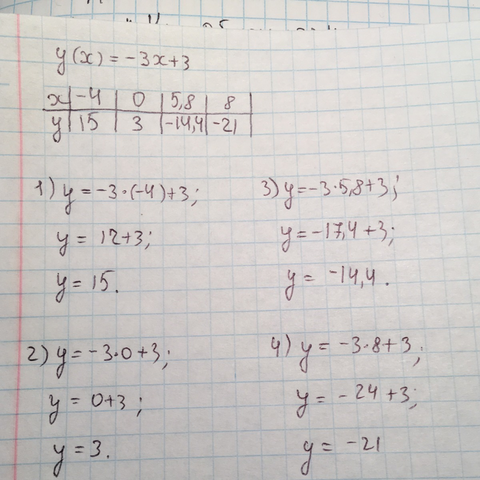 y(x) = -3x+3
x | -4 | 0 | 5,8 | 8 |
y | 15 | 3 | -14,4 | -21 |
1) y = -3·(-4)+3;
y = 12+3;
y = 15.
2) y = -3·0+3;
y = 0+3;
y = 3.
3) y = -3·5,8+3;
y = -17,4+3;
y = -14,4.
4) y = -3·8+3;
y = -24+3;
y = -21